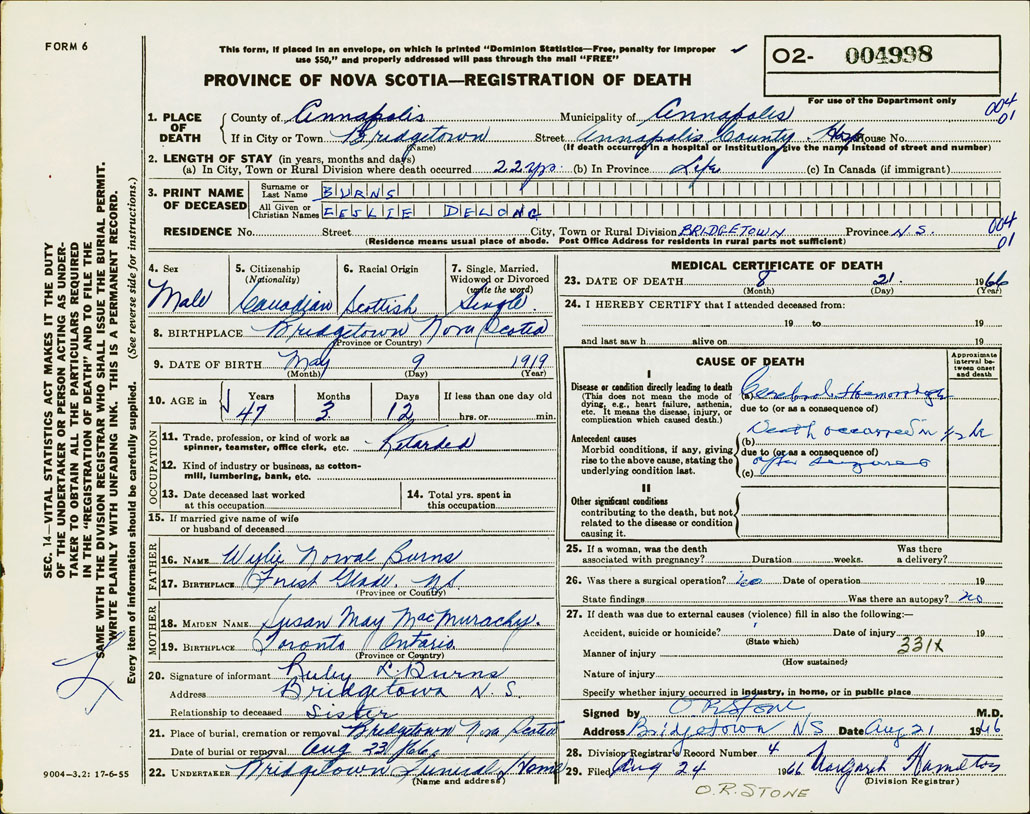 FORM 6
This form, if placed in an envelope, on which is printed "Dominion Statistics—Free, penalty for improper
use $50," and properly addressed will pass through the mail "FREE"
✓
O2- 004998
PROVINCE OF NOVA SCOTIA—REGISTRATION OF DEATH
For use of the Department only
1. PLACE OF DEATH County of Annapolis Municipality of Annapolis 004 01
If in City or Town Bridgetown Street Annapolis County Hosp House No.
(name) (If death occurred in a hospital or institution, give the name instead of street and number)
2. LENGTH OF STAY (in years, months and days)
(a) In City, Town or Rural Division where death occurred 22 yrs. (b) In Province Life (c) In Canada (if immigrant)
3. PRINT NAME OF DECEASED Surname or Last Name BURNS
All Given or Christian Names LESLIE DELONG
RESIDENCE No. Street City, Town or Rural Division BRIDGETOWN Province N.S. 004 01
(Residence means usual place of abode. Post Office Address for residents in rural parts not sufficient)
SEC. 14—VITAL STATISTICS ACT MAKES IT THE DUTY
OF THE UNDERTAKER OR PERSON ACTING AS UNDER-
TAKER TO OBTAIN ALL THE PARTICULARS REQUIRED
IN THE "REGISTRATION OF DEATH" AND TO FILE THE
SAME WITH THE DIVISION REGISTRAR WHO SHALL ISSUE THE BURIAL PERMIT.
WRITE PLAINLY WITH UNFADING INK. THIS IS A PERMANENT RECORD.
Every item of information should be carefully supplied. (See reverse side for instructions.)
4. Sex 5. Citizenship (Nationality) 6. Racial Origin 7. Single, Married, Widowed or Divorced (write the word)
Male Canadian Scottish Single.
8. BIRTHPLACE Bridgetown Nova Scotia
(Province or Country)
9. DATE OF BIRTH May 9 1919
(Month) (Day) (Year)
10. AGE IN Years Months Days If less than one day
47 3 12 hrs. or min.
OCCUPATION
11. Trade, profession, or kind of work as
spinner, teamster, office clerk, etc. Retarded
12. Kind of industry or business, as cotton-
mill, lumbering, bank, etc.
13. Date deceased last worked at this occupation 14. Total yrs. spent in this occupation
15. If married give name of wife
or husband of deceased
FATHER
16. NAME Wylie Nowal Burns
17. BIRTHPLACE Forest Glade. N.S.
(Province or Country)
MOTHER
18. MAIDEN NAME Susan May MacMurachy.
19. BIRTHPLACE Toronto Ontario
(Province or Country)
20. Signature of informant Ruby L. Burns
Address Bridgetown N.S.
Relationship to deceased Sister
21. Place of burial, cremation or removal Bridgetown Nova Scotia
Date of burial or removal Aug 23/66
22. UNDERTAKER Bridgetown Funeral Home
(Name and address)
9004-3.2: 17-6-55
MEDICAL CERTIFICATE OF DEATH
23. DATE OF DEATH 8 21. 1966
(Month) (Day) (Year)
24. I HEREBY CERTIFY that I attended deceased from:
19 to 19
and last saw h alive on 19
CAUSE OF DEATH
Approximate interval between onset and death
I
Disease or condition directly leading to death
(This does not mean the mode of
dying, e.g., heart failure, asthenia,
etc. It means the disease, injury, or
complication which caused death.)
(a) Cerebral Hemorrhage
due to (or as a consequence of)
Antecedent causes
Morbid conditions, if any, giving
rise to the above cause, stating the
underlying condition last.
Death occurred in ½ hr
(b)
due to (or as a consequence of)
(c) after seizures
II
Other significant conditions
contributing to the death, but not
related to the disease or condition
causing it.
25. If a woman, was the death associated with pregnancy? Duration weeks. Was there a delivery?
26. Was there a surgical operation? no Date of operation 19
State findings Was there an autopsy? no
27. If death was due to external causes (violence) fill in also the following:—
Accident, suicide or homicide? Date of injury 19
(State which)
331X
Manner of injury
(How sustained)
Nature of injury
Specify whether injury occurred in industry, in home, or in public place
Signed by O.R. STONE M.D.
Address Bridgetown NS Date Aug 21 1966
28. Division Registrar's Record Number 4
29. Filed Aug 24 1966 Margaret Hamilton
(Division Registrar)
O.R. STONE